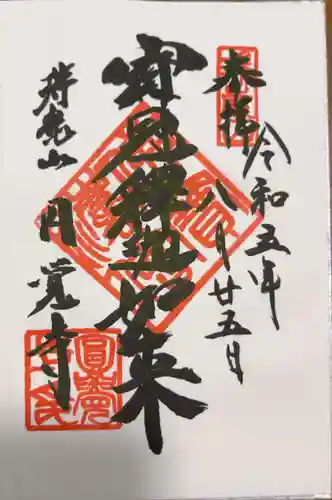 奉拝
令和五年
八月廿五日
宝冠釈迦如来
瑞鹿山
円覚寺